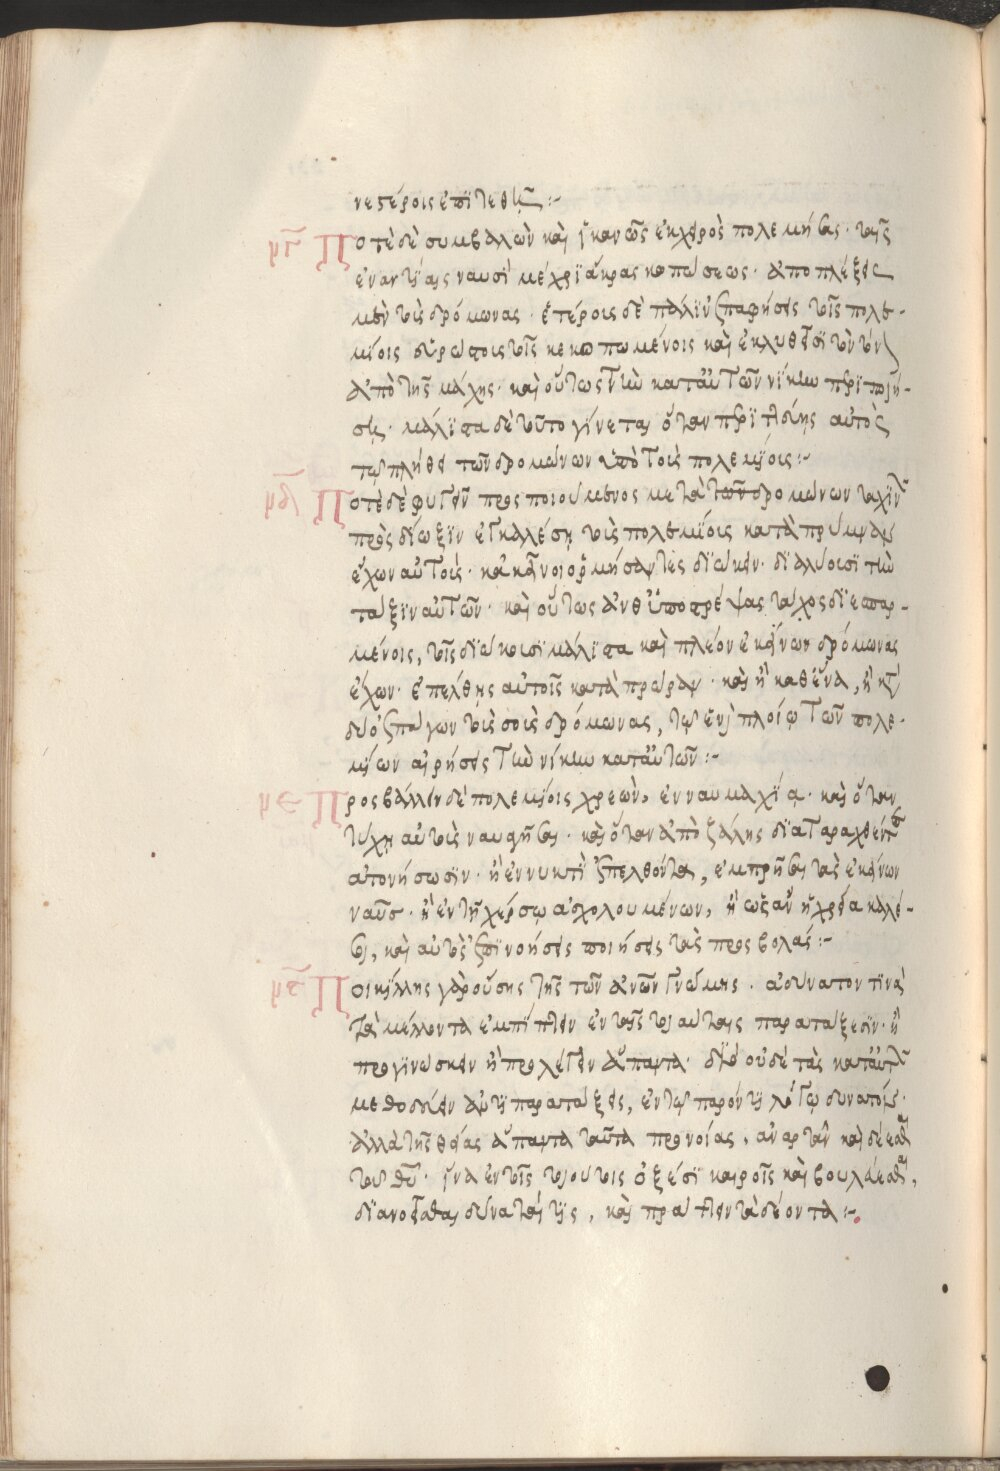 νεστέροις ἐπιτεθῇς :-
μγ Ποτὲ δὲ συμβαλὼν καὶ ἱκανῶς ἐκ χειρὸς πολεμήσας· ταῖς
ἐναντίαις ναυσὶ μέχρι ἄκρας κοπώσεως· ἀποπλέξεις
μὲν τοὺς δρόμωνας· ἑτέροις δὲ πάλιν ἐπαφήσεις τοῖς πολε-
μίοις εὐρώστοις τοῖς κεκοπωμένοις καὶ ἐκλυθεῖσι τὸν τόν
ἀπὸ τῆς μάχης· καὶ οὕτως τὴν κατ' αὐτῶν νίκην περιποιή-
σῃς· μάλιστα δὲ τοῦτο γίνεται ὅταν περιπλέῃς αὐτὸς
τῷ πλήθει τῶν δρομώνων ὑπὸ τοὺς πολεμίοις :-
μδ Ποτὲ δὲ φυγεῖν προσποιούμενος μετὰ τῶν δρομώνων ταχινῶν
πρὸς δίωξιν ἐγκαλέσῃ τοὺς πολεμίοις κατὰ πρύμναν
ἔχων αὐτοὺς· κἀκεῖνοι ὁρμήσαντες διώκειν· διαλύουσι τὴν
τάξιν αὐτῶν· καὶ οὕτως ἀνθυποστρέψας τάχος διεσπαρ-
μένοις, τοῖς διώκουσι μάλιστα καὶ πλέον ἐκείνων δρόμωνας
ἔχων· ἐπέλθῃς αὐτοῖς κατὰ πρώραν· καὶ ἢ καθ' ἕνα, ἢ κατὰ
δύο ἐπάγων τοὺς σοὺς δρόμωνας, τῷ ἑνὶ πλοίῳ τῶν πολε-
μίων αἱρήσεις τὴν νίκην κατ' αὐτῶν :-
με Προσβάλλειν δὲ πολεμίοις χρεὼν, ἐν ναυμαχίᾳ· καὶ ὅταν
τύχῃ αὐτοὺς ναυαγῆσαι· καὶ ὅταν ἀπὸ ζάλης διαταραχθέντες
ἀτονήσωσιν· ἢ ἐν νυκτὶ ἐπελθόντα, ἐμπρῆσαι τὰς ἐκείνων
ναῦς· ἢ ἐν τῇ χέρσῳ ἀσχολουμένων, ἢ ὡς ἂν ἡ χρεία καλέ-
σῃ, καὶ αὐτὸς ἐπινοήσεις ποιήσεις τὰς προσβολάς :-
μς Ποικίλης γὰρ οὔσης τῆς τῶν ἀνῶν γνώμης· ἀδύνατόν τινα
τὰ μέλλοντα ἐμπίπτειν ἐν ταῖς τοιαύταις παρατάξεσιν· ἢ
προγινώσκειν ἢ προλέγειν ἅπαντα· διὸ οὐδὲ τὰς κατ' αὐτῶν
μεθοδείειν ἀντιπαρατάξεις, ἐν τῷ παρόντι λόγῳ δυνατόν·
ἀλλὰ τῆς θείας ἅπαντα ταῦτα προνοίας, ἀναρτᾶν καὶ δέεσθαι
τοῦ θῦ· ἵνα ἐν τοῖς τοιούτοις ὀξέσι καιροῖς καὶ βουλεύεσθαι,
διανοεῖσθαι δύναταί τις, καὶ πράττειν τὰ δέοντα :-